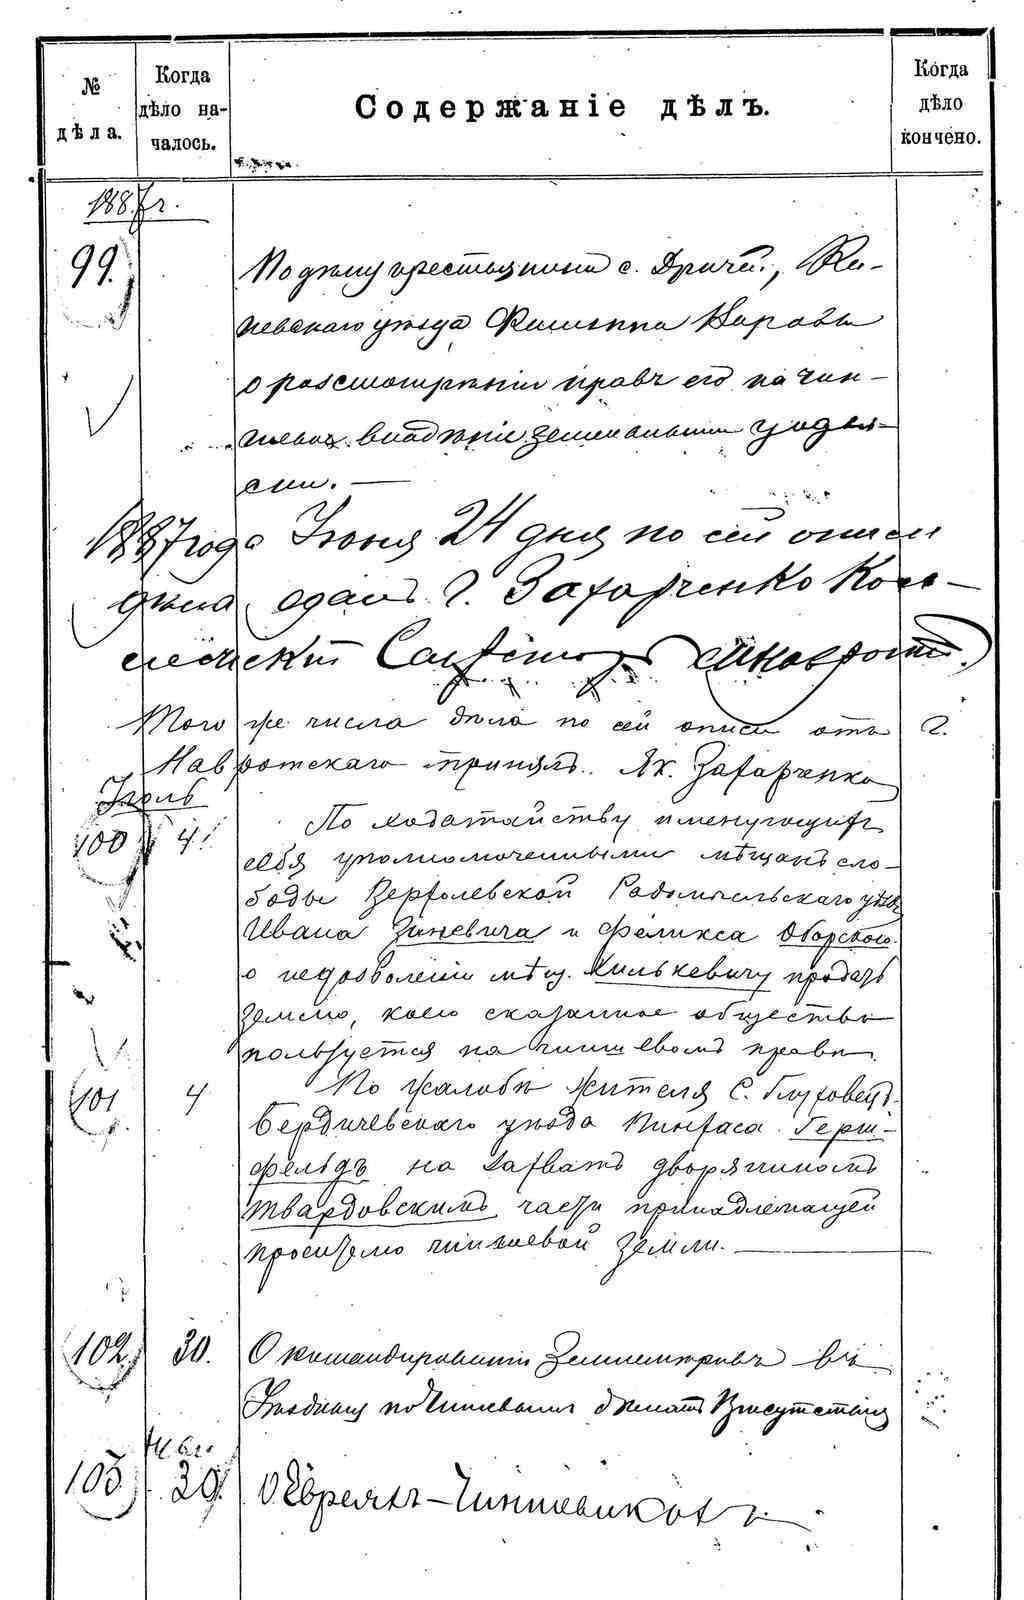 № дѣла.
Когда дѣло на-чалось.
Содержаніе дѣлъ.
Когда дѣло кончено.
1887 г.
99.
По дѣлу крестьянина с. , Ка-
невскаго уѣзда Филиппа
о разсмотрѣніи правъ его на чин-
шевое владѣніе земельными угодья-
ми. —
1887 года Іюня 24 дня по сей описи
дѣла сдалъ Г. Захарченко Кол-
лежскій
Того же числа дѣла по сей описи отъ г.
Навротскаго принялъ Як. Захарченко
Іюль
100 4.
По ходатайству именующихъ
себя уполномоченными мѣщанъ сло-
боды Вертолевской Радомысльскаго уѣзда
Ивана Зиневича и Феликса Оборского
о недозволеніи мѣщ. Хилькевичу продать
землю, коею сказанное общество
пользуется на чиншевомъ правѣ.
101 4
По жалобѣ жителя С. Глуховецъ
Бердичевскаго уѣзда Пинхаса Герш-
фельдъ на захватъ дворяниномъ
Твардовскимъ части принадлежащей
просителю чиншевой земли. —
102 30.
О командированіи Землемѣровъ въ
Уѣздныя по чиншевымъ дѣламъ Присутствія
103 30.
О Евреяхъ-Чиншевикахъ.